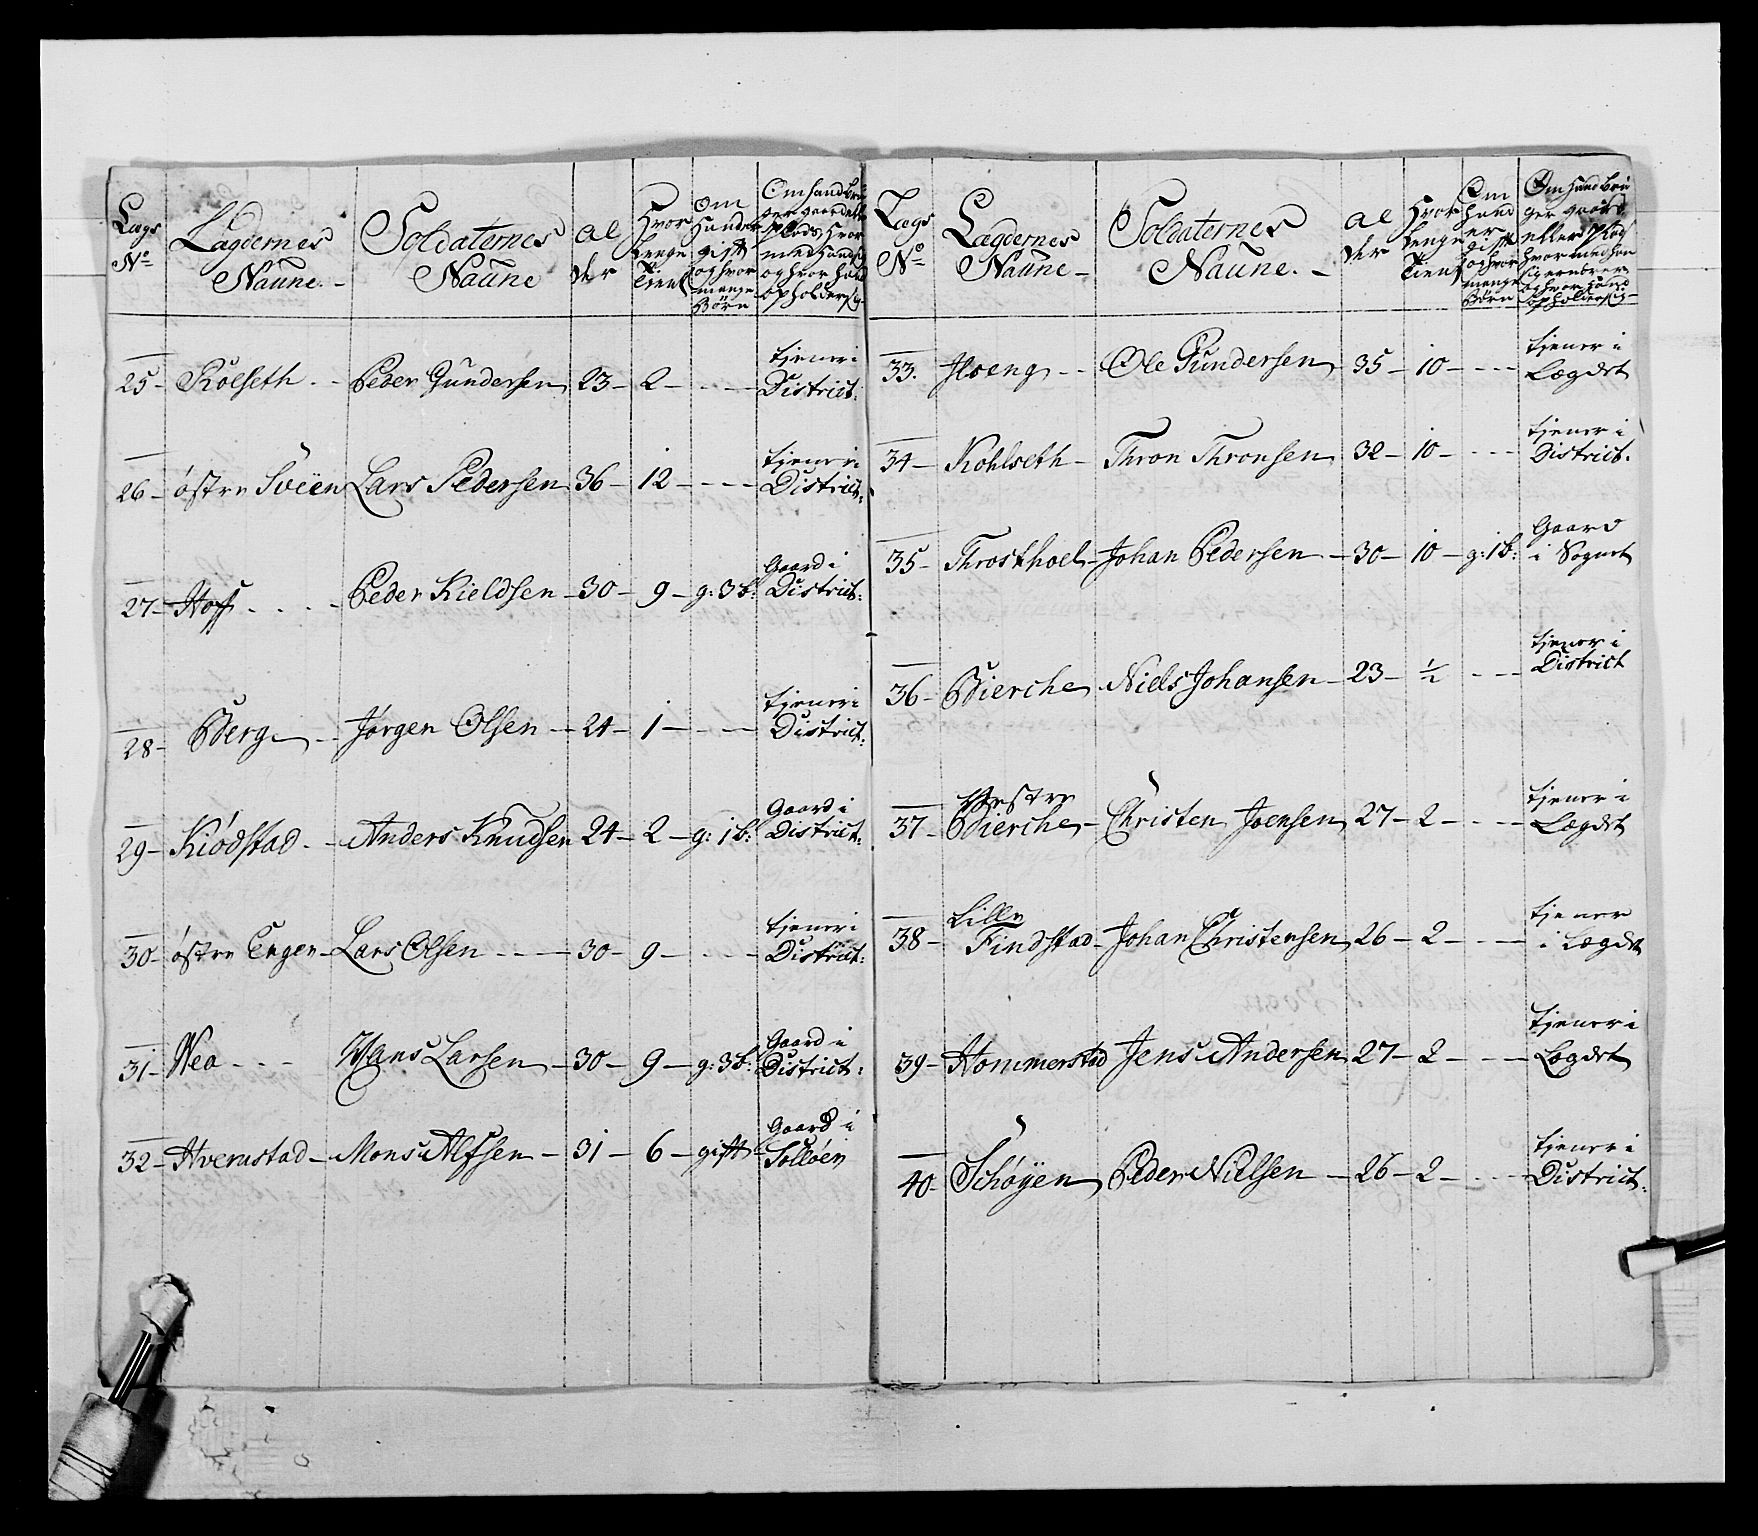 Lægs No
Lægdernes Naune.
Soldaternes Naune
al der
Hvor lenge Tient
Om Hand er gift og hvor mange Børn
Om hand bruger gaard eller Plads, hvor med Hand og hvor hand opholder sig
25 - Kolseth - - Peder Gundersen 23 - 2 - - - - tjener i District:
26 - østre Sveen Lars Pedersen 36 - 12 - - - - tjener i District:
27 - Hoff - - - - Peder Kieldsen - 30 - 9 - g: 3 b: Gaard i District:
28 - Berg - - Jørgen Olsen - 24 - 1 - - - - tjener i District:
29 - Kiødstad - - Anders Knudsen 24 - 2 - g: 1 b: Gaard i District:
30 - østre Enger - Lars Olsen - - - - 30 - 9 - - - - tjener i District:
31 - Nea - - - Hans Larsen - 30 - 9 - g: 3 b: Gaard i District:
32 - Hvemstad - Mons Alfsen - 31 - 6 - gift - Gaard i Solløer
Lægs No
Lægdernes Naune -
Soldaternes Naune. -
al der
Hvor lenge Tient
Om hand er gift og hvor mange Børn
Om hand bruger gaard eller Plads hvor med han sig ernærer og hvor hand opholder sig -
33. Hoeng - - Ole Gundersen 35 - 10 - - - - tjener i Lægdet
34 - Kohlseth - Thron Thronsen 32 - 10 - - - - tjener i District.
35 - Throsthoel - Johan Pedersen - 30 - 10 - g: 1 b: Gaard i Sognet
36 - Bierche Niels Johansen - 23 - 1/2 - - - tjener i District
37 - Vestre Bierche - Christen Joensen 27 - 2 - - - - tjener i Lægdet
38 - Lille Findstad - Johan Christensen 26 - 2 - - - - tjener i Lægdet
39 - Hommerstad Jens Andersen 27 - 2 - - - - tjener i Lægdet
40 - Schøyen Peder Nielsen - 26 - 2 - - - - tjener i District: